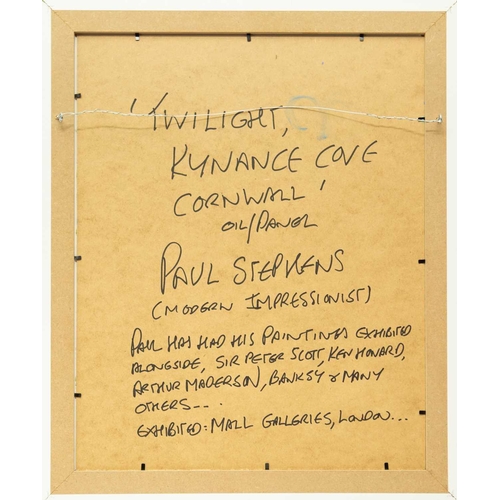 'TWILIGHT,
KYNANCE COVE
CORNWALL'
OIL/PANEL
PAUL STEPHENS
(MODERN IMPRESSIONIST)
PAUL HAS HAD HIS PAINTINGS EXHIBITED
ALONGSIDE, SIR PETER SCOTT, KEN HOWARD,
ARTHUR MADERSON, BANKSY & MANY
OTHERS...
EXHIBITED: MALL GALLERIES, LONDON...